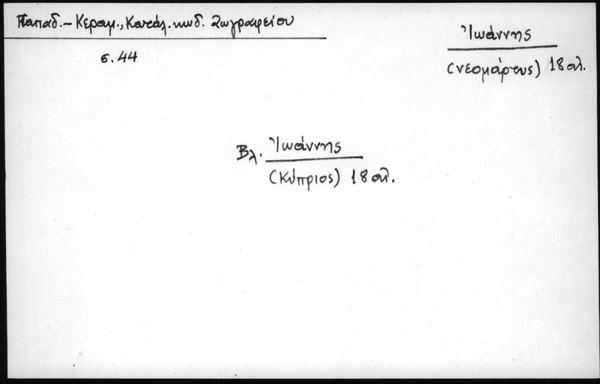 Παπαδ.-Κεραμ., Κατάλ. κωδ. Ζωγραφείου
σ. 44
Ἰωάννης
(νεομάρτυς) 18 αἰ.
Βλ. Ἰωάννης
(Κύπριος) 18 αἰ.